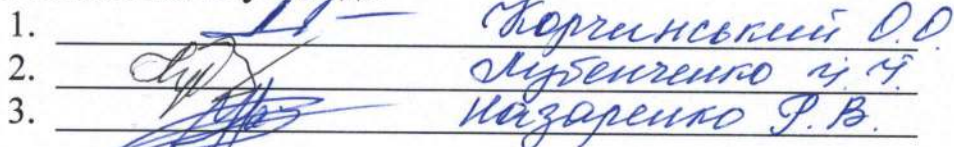 1. Корчинський О.О
2. Лубенченко
3. Назаренко Р.В.